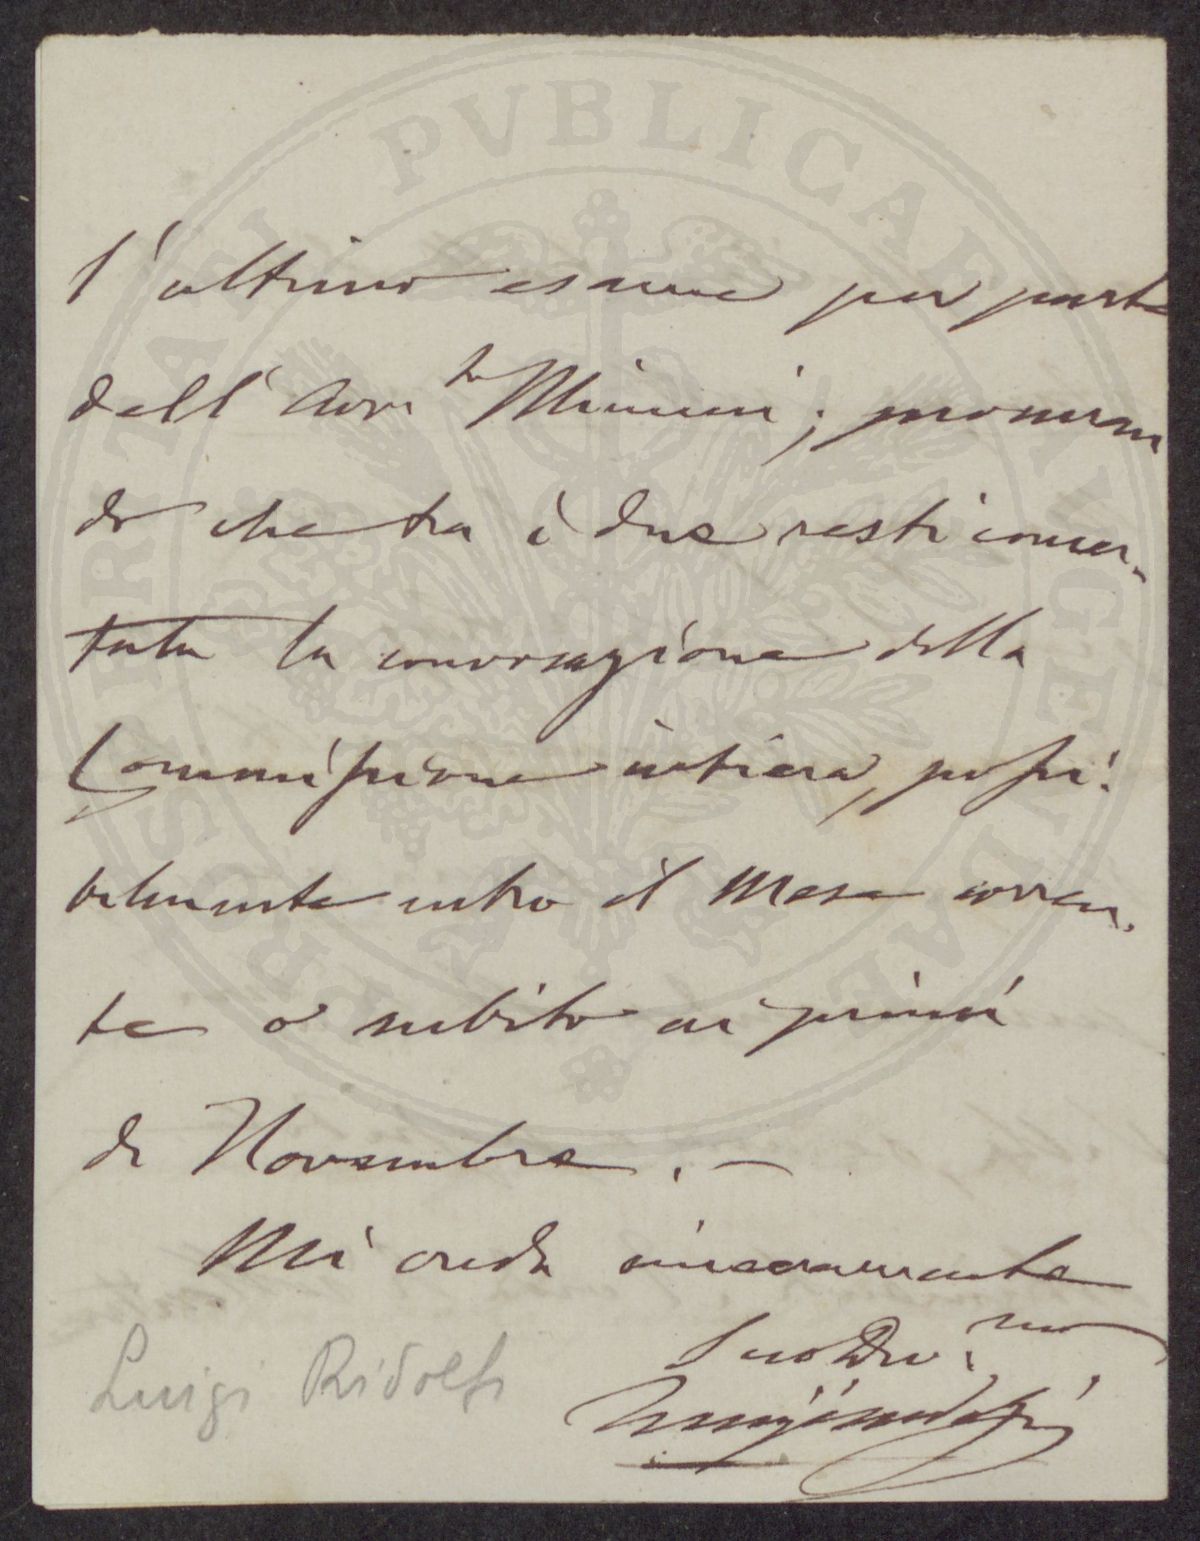 l'ultimo esame per parte
dell'Avv.to Mimmi;
do che tra i due resti concer-
tata la convocazione della
Commissione intiera, possi-
bilmente entro il mese corren-
te o subito ai primi
di Novembre. —
Mi creda sinceramente
Suo Dev.mo
Luigi Ridolfi
Luigi Ridolfi